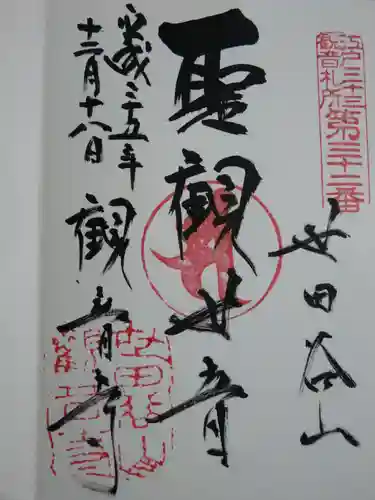 江戸三十三
観音札所
第三十二番
世田谷山
聖観世音
観音寺
平成二五年
十二月十八日